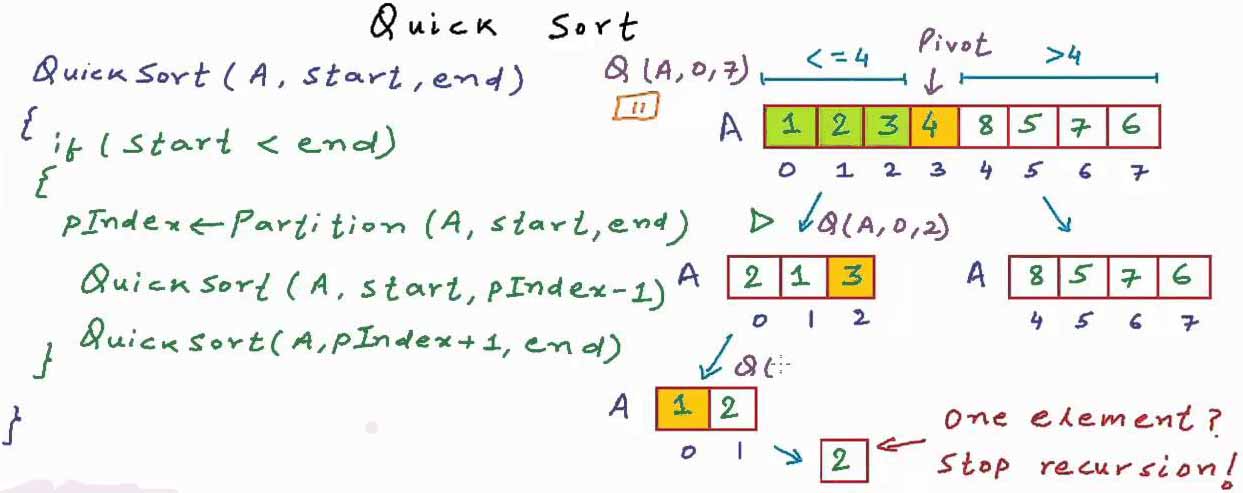 Quick Sort
QuickSort(A, start, end)
{
if (start < end)
{
pIndex ← Partition (A, start, end)
QuickSort(A, start, pIndex-1)
QuickSort(A, pIndex+1, end)
}
}
Q(A,0,7)
11
<=4
Pivot
>4
A 1 2 3 4 8 5 7 6
0 1 2 3 4 5 6 7
Q(A,0,2)
A 2 1 3
0 1 2
A 8 5 7 6
4 5 6 7
Q(
A 1 2
0 1
2
One element?
Stop recursion!